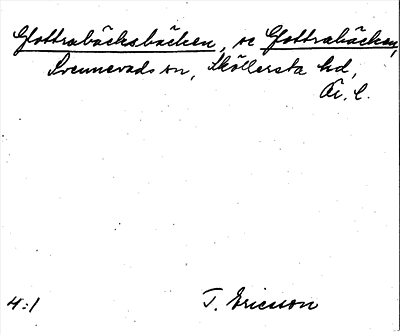 Glottrabäcksbäcken, se Glottrabäcken,
Svennevads sn, Sköllersta hd,
Ör. l.
4:1
T. Ericsson